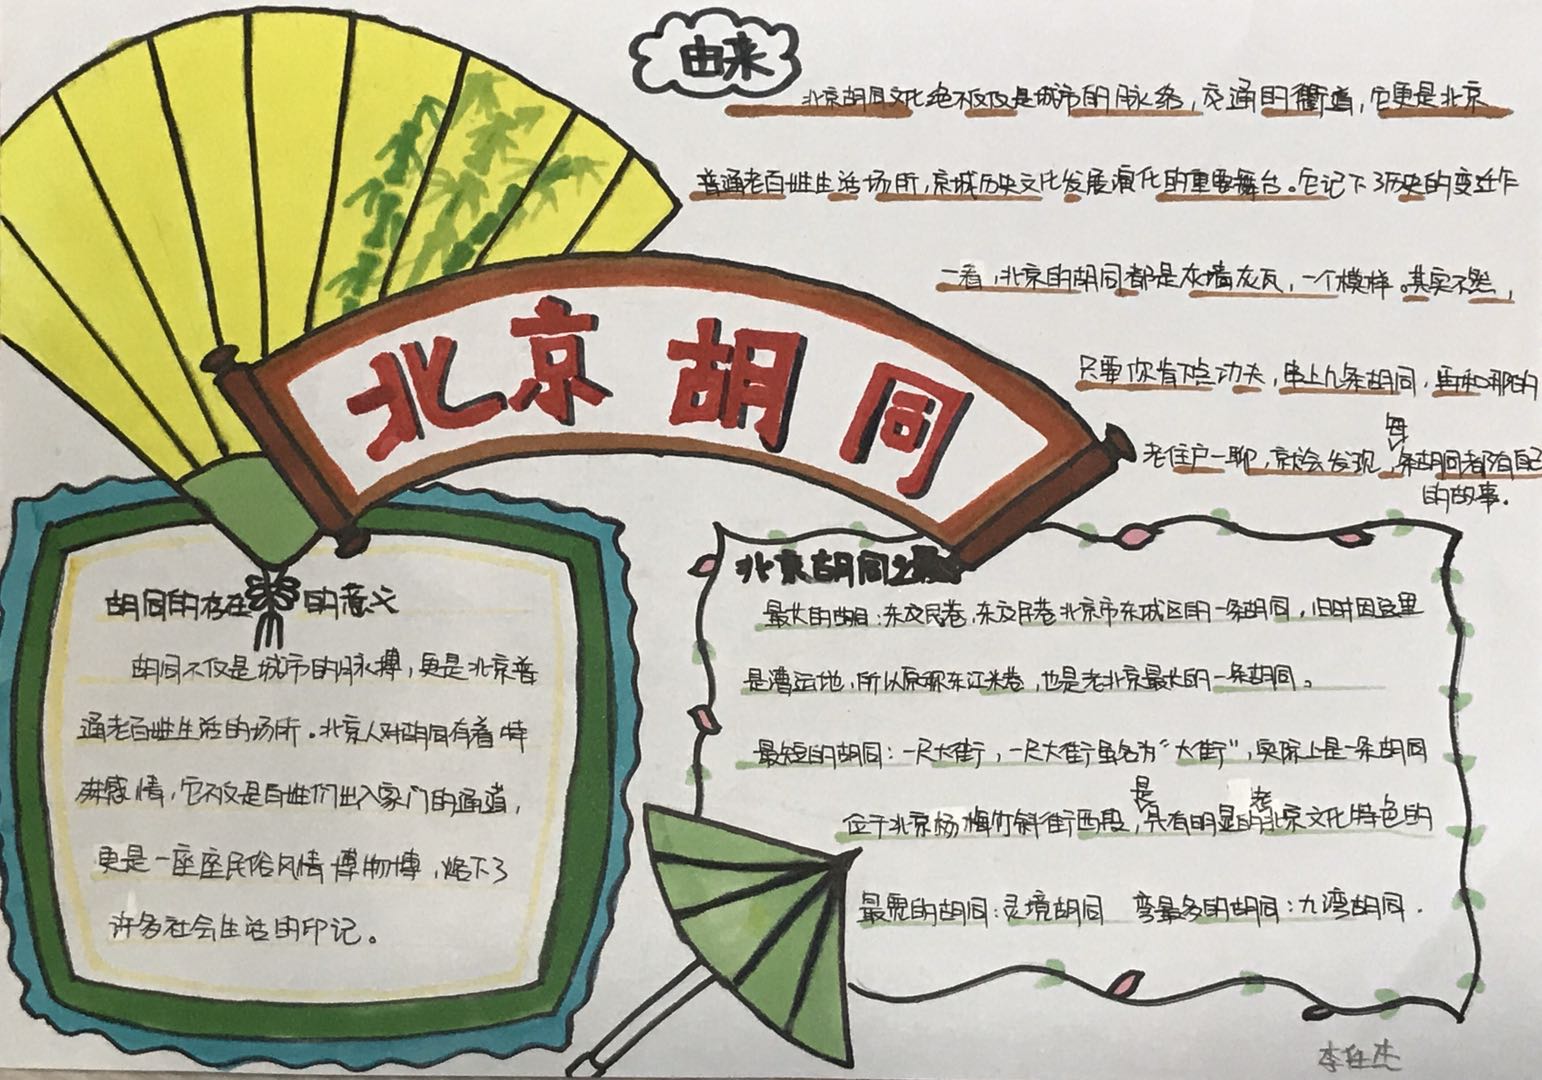 由来
北京胡同文化绝不仅仅是城市的脉络，交通的衢道，它更是北京
普通老百姓生活场所，京城历史文化发展演化的重要舞台。它记下了历史的变迁乍
一看，北京的胡同都是灰墙灰瓦，一个模样。其实不然，
只要你肯下点功夫，串上几条胡同，再和那的
老住户一聊，就会发现，每条胡同都有自己
的故事。
北京胡同
胡同的存在的意义
胡同不仅是城市的脉搏，更是北京普
通老百姓生活的场所。北京人对胡同有着特
殊感情，它不仅是百姓们出入家门的通道，
更是一座座民俗风情博物博，烙下了
许多社会生活的印记。
北京胡同之最
最长的胡同：东交民巷，东交民巷北京市东城区的一条胡同，旧时因这里
是漕运地，所以原称东江米巷，也是老北京最长的一条胡同。
最短的胡同：一尺大街，一尺大街虽名为“大街”，实际上是一条胡同
位于北京杨梅竹斜街西段，是具有明显的老北京文化特色的
最宽的胡同：灵境胡同 弯最多的胡同：九湾胡同．